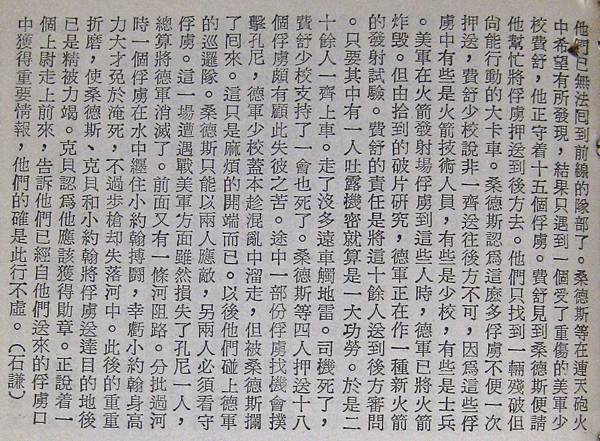 他們已無法囘到前線的隊部了。桑德斯等在連天砲火
中希望有所發現，結果只遇到一個受了重傷的美軍少
校費舒，他正守着十五個俘虜。費舒見到桑德斯便請
他幫忙將俘虜押送到後方去。他們只找到一輛殘破但
尚能行動的大卡車。桑德斯認爲這麼多俘虜不便一次
押送，費舒少校說非一齊送往後方不可，因爲這些俘
虜中有些是火箭技術人員，有些是少校，有些是士兵
。美軍在火箭發射場俘虜到這些人時，德軍已將火箭
炸毀。但由拾到的破片研究，德軍正在作一種新火箭
的發射試驗。費舒的責任是將這十餘人送到後方審問
。只要其中有一人吐露機密就算是一大功勞。於是二
十餘人一齊上車。走了沒多遠車觸地雷。司機死了，
費舒少校支持了一會也死了。桑德斯等四人押送十八
個俘虜頗有顧此失彼之苦。途中一部份俘虜找機會撲
擊孔尼，德軍少校蓋本趁混亂中溜走，但被桑德斯攔
了囘來。這只是麻煩的開端而已。以後他們碰上德軍
的巡邏隊。桑德斯只能以兩人應敵，另兩人必須看守
俘虜。這一場遭遇戰美軍方面雖然損失了孔尼一人，
總算將德軍消滅了。前面又有一條河阻路。分批過河
時一個俘虜在水中纏住小約翰搏鬪，幸虧小約翰身高
力大才免於淹死，不過步槍却失落河中。此後的重重
折磨，使桑德斯、克貝和小約翰將俘虜送達目的地後
已是精疲力竭。克貝認爲他應該獲得勛章。正說着一
個上尉走上前來，告訴他們已經自他們送來的俘虜口
中獲得重要情報，他們的確是此行不虛。（石謙）